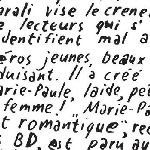 arali vise le crene
e lecteurs qui s'
dentifient mal a
éros jeunes, beaux
duisant. Il a créé
arie-Paule, laide, pet
femme ! Marie-Pa
t romantique, rec
BD est paru au